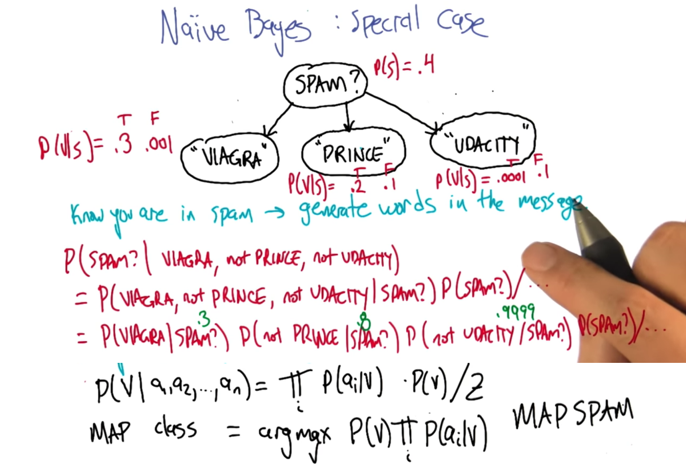 Naïve Bayes : Special Case
SPAM? P(s)= .4
T F
P(V|s) = .3 .001
"VIAGRA" "PRINCE" "UDACITY"
T F T F
P(V|s) = .2 .1 P(V|s) = .0001 .1
Know you are in spam → generate words in the message
P(SPAM? | VIAGRA, not PRINCE, not UDACITY)
= P(VIAGRA, not PRINCE, not UDACITY | SPAM?) P(SPAM?)/...
.3 .8 .9999
= P(VIAGRA|SPAM?) P(not PRINCE|SPAM?) P(not UDACITY/SPAM?) P(SPAM?)/...
P(V | a₁, a₂, ..., aₙ) = ∏ᵢ P(aᵢ|V) · P(V) / Z
MAP class = argmax P(V) ∏ᵢ P(aᵢ|V) MAP SPAM